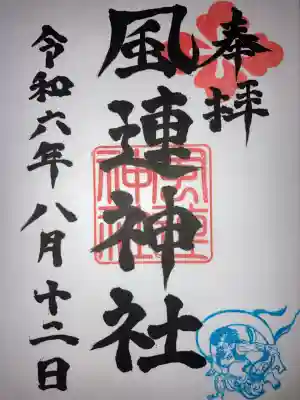 奉拝
風連神社
令和六年八月十二日
風連神社